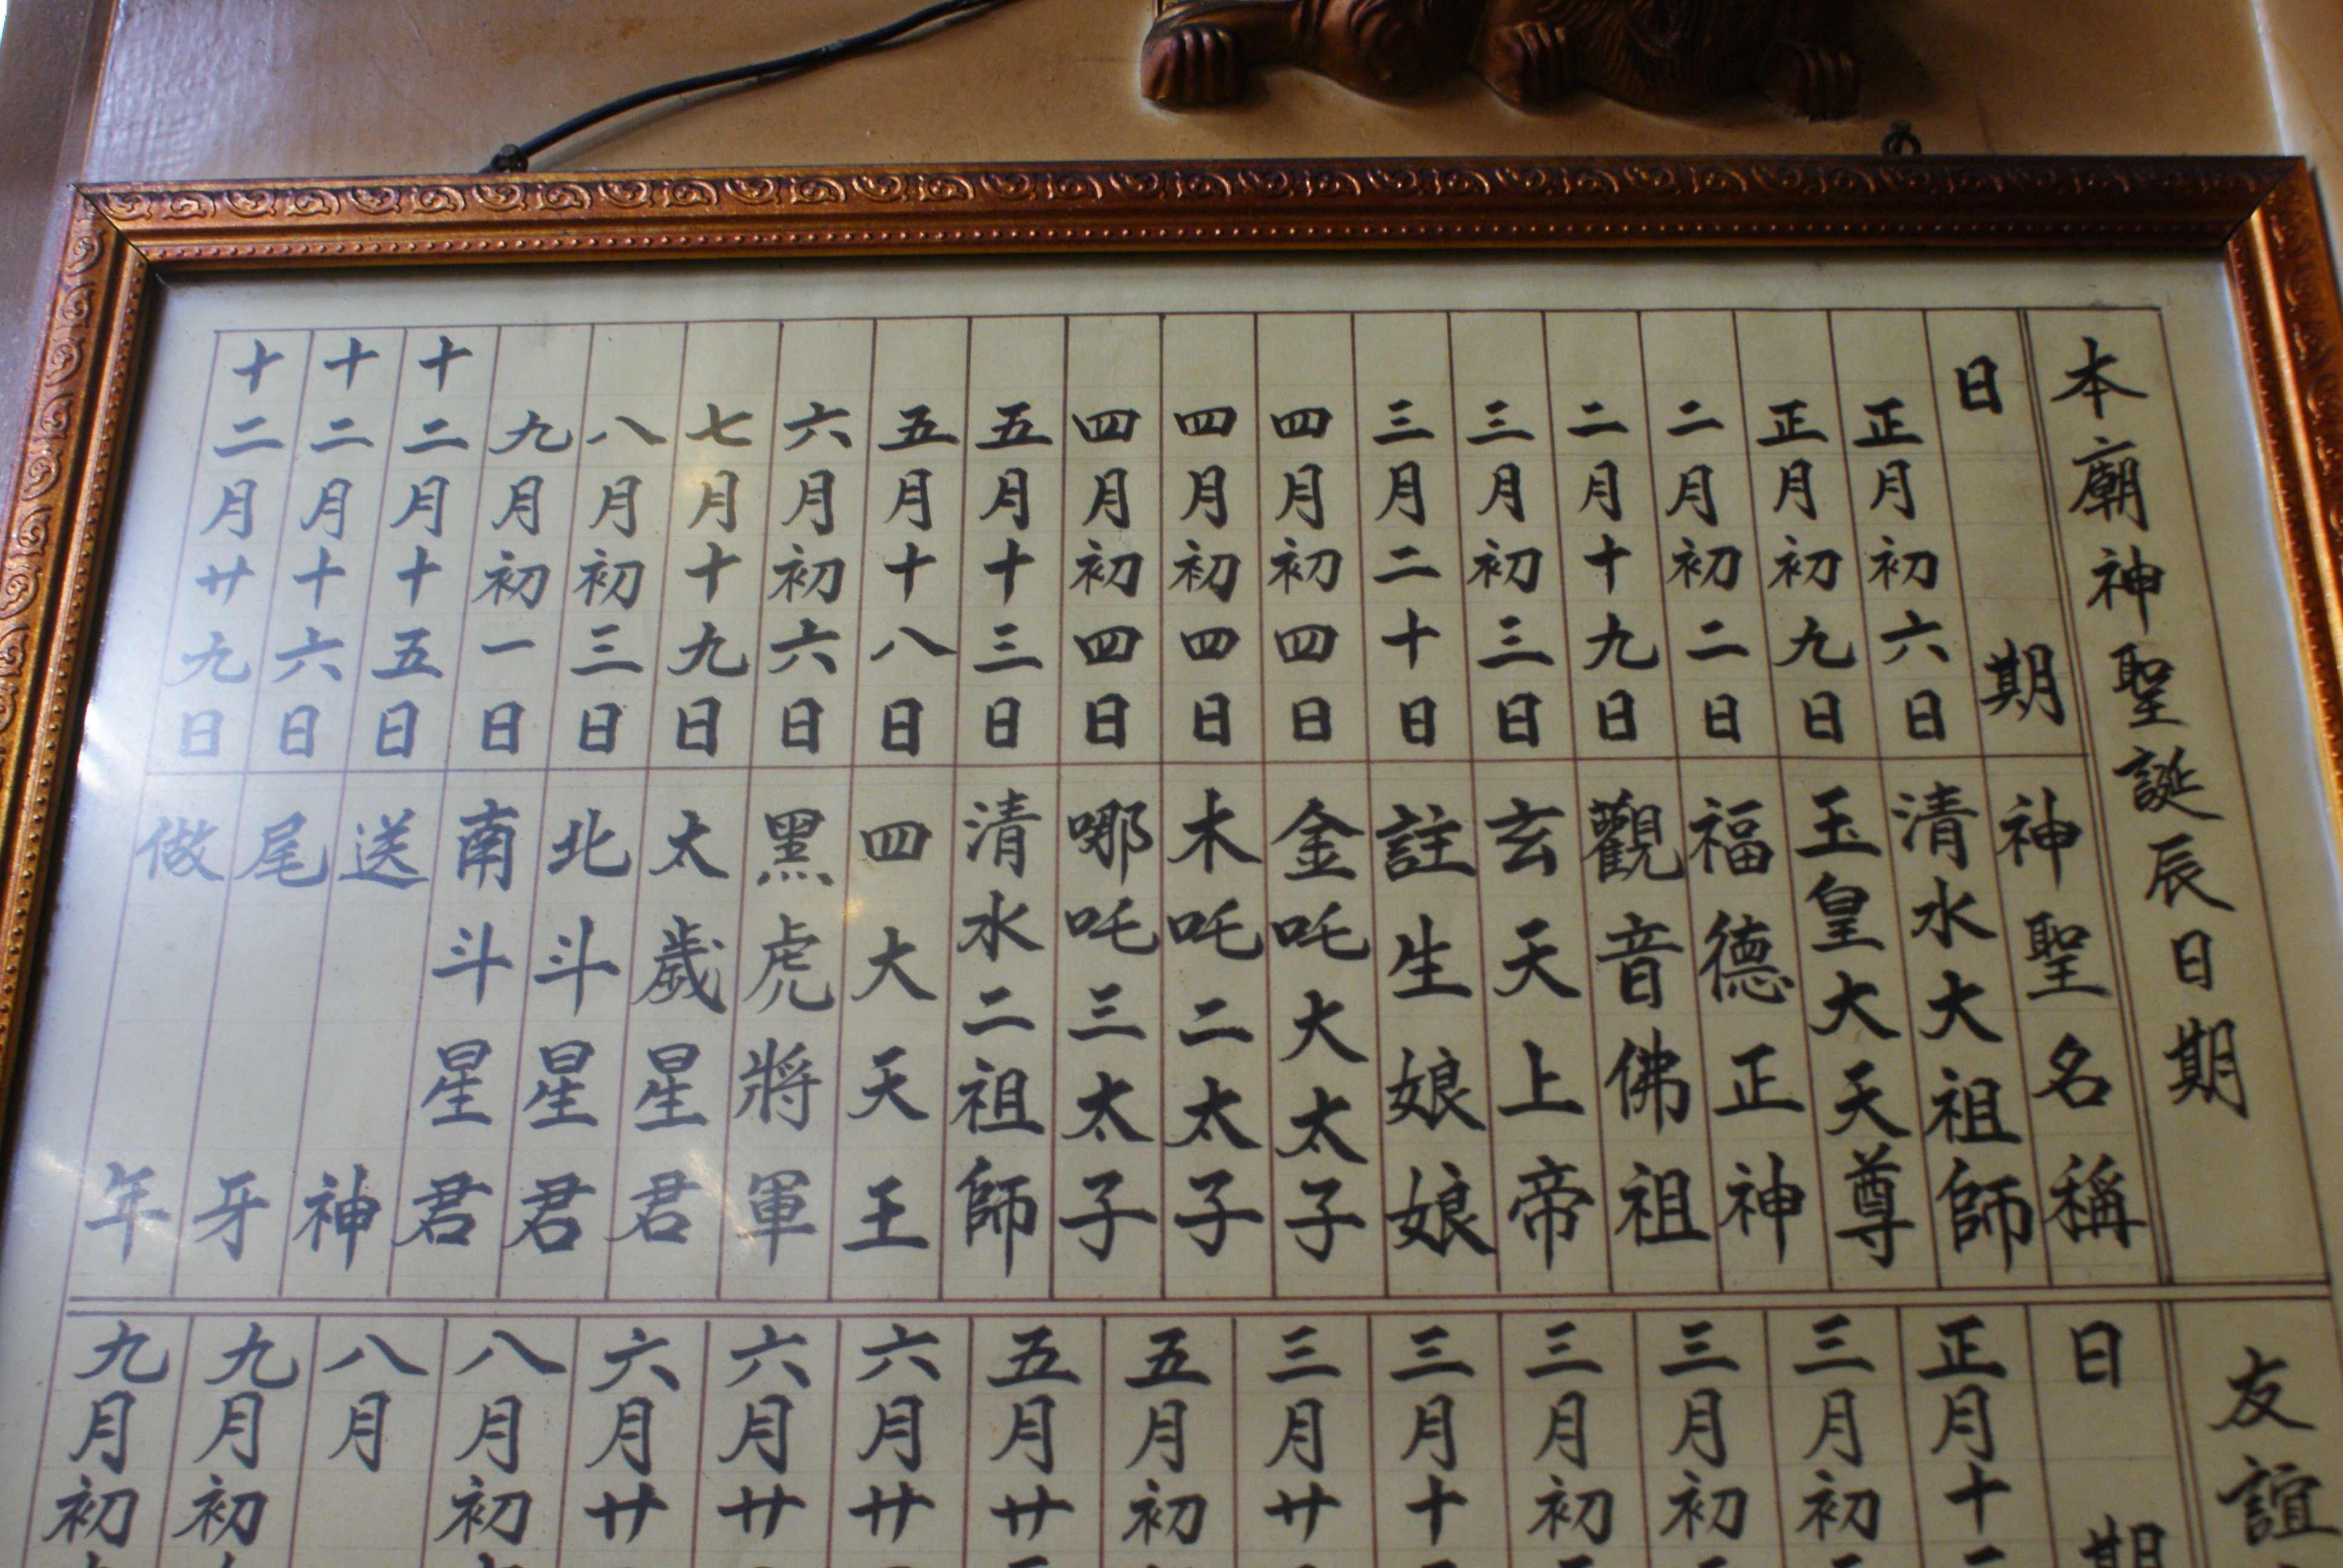 本廟神聖誕辰日期
日期 神聖名稱
正月初六日 清水大祖師
正月初九日 玉皇大天尊
二月初二日 福德正神
二月十九日 觀音佛祖
三月初三日 玄天上帝
三月二十日 註生娘娘
四月初四日 金吒大太子
四月初四日 木吒二太子
四月初四日 哪吒三太子
五月十三日 清水二祖師
五月十八日 四大天王
六月初六日 黑虎將軍
七月十九日 太歲星君
八月初三日 北斗星君
九月初一日 南斗星君
十二月十五日 送神
十二月十六日 尾牙
十二月廿九日 做年
友誼
日期
正月十
三月初
三月初
三月初
三月十
三月廿
五月初
五月廿
六月廿
六月廿
六月廿
八月初
八月
九月初
九月初